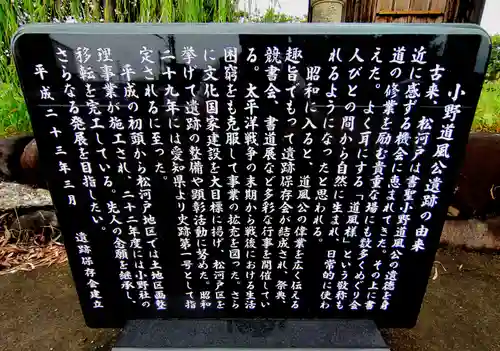 小野道風公遺跡の由来
古来、松河戸は書聖小野道風公の遺徳を身
近に感ずる機会に恵まれてきた。その上に書
道の修業を励む貴重な場にも数多くめぐり会
えた。よく耳にする「道風様」という敬称も
人びとの間から自然に生まれ、日常的に使わ
れるようになったと思われる。
昭和に入ると、道風公の偉業を広く伝える
趣旨でもって遺跡保存会が結成され、祭典、
競書会、書道展など多彩な行事を開催してい
る。太平洋戦争の末期から戦後における生活
困窮をも克服して事業の拡充を図った。さら
に文化国家建設を大目標に掲げ、松河戸区を
挙げて遺跡の整備や顕彰活動に努めた。昭和
二十九年には愛知県より史跡第一号として指
定されるに至った。
平成の初頭から松河戸地区では土地区画整
理事業が施工され、二十二年度には小野社の
移転を完工している。先人の念願を継承し、
さらなる発展を目指したい。
平成二十三年三月
遺跡保存会建立